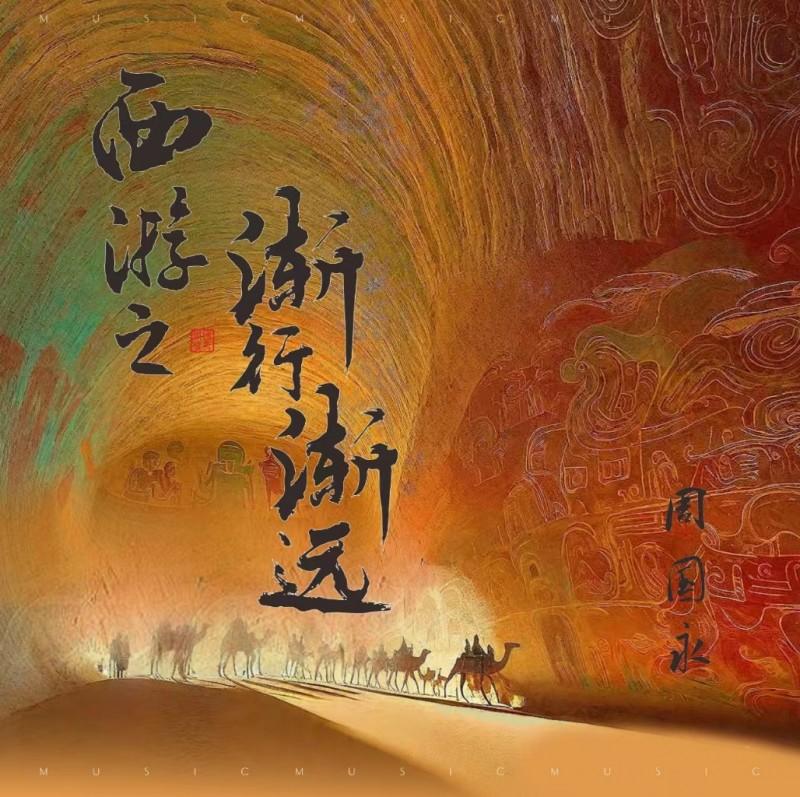 MUSICMUSICMUSIC
西游之
渐行渐远
周国永
MUSICMUSICMUSIC